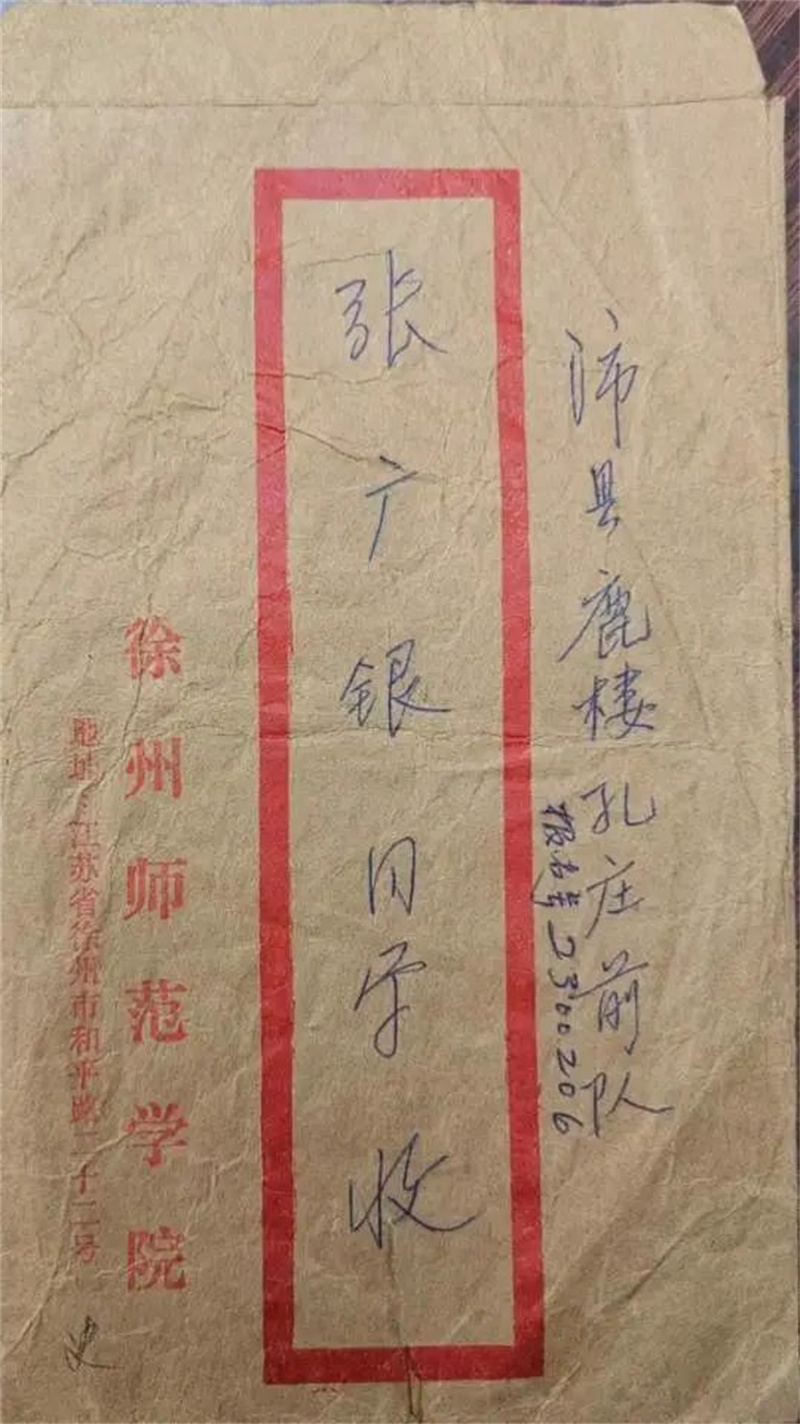 沛县鹿楼孔庄前队
报考号2300206
张广银同学收
徐州师范学院
地址：江苏省徐州市和平路二十二号
史